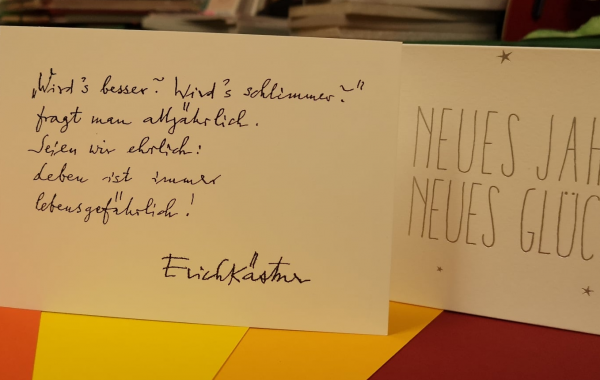 „Wird's besser? Wird's schlimmer?"
fragt man alljährlich.
Seien wir ehrlich:
Leben ist immer
lebensgefährlich!
Erich Kästner
NEUES JAH
NEUES GLÜC